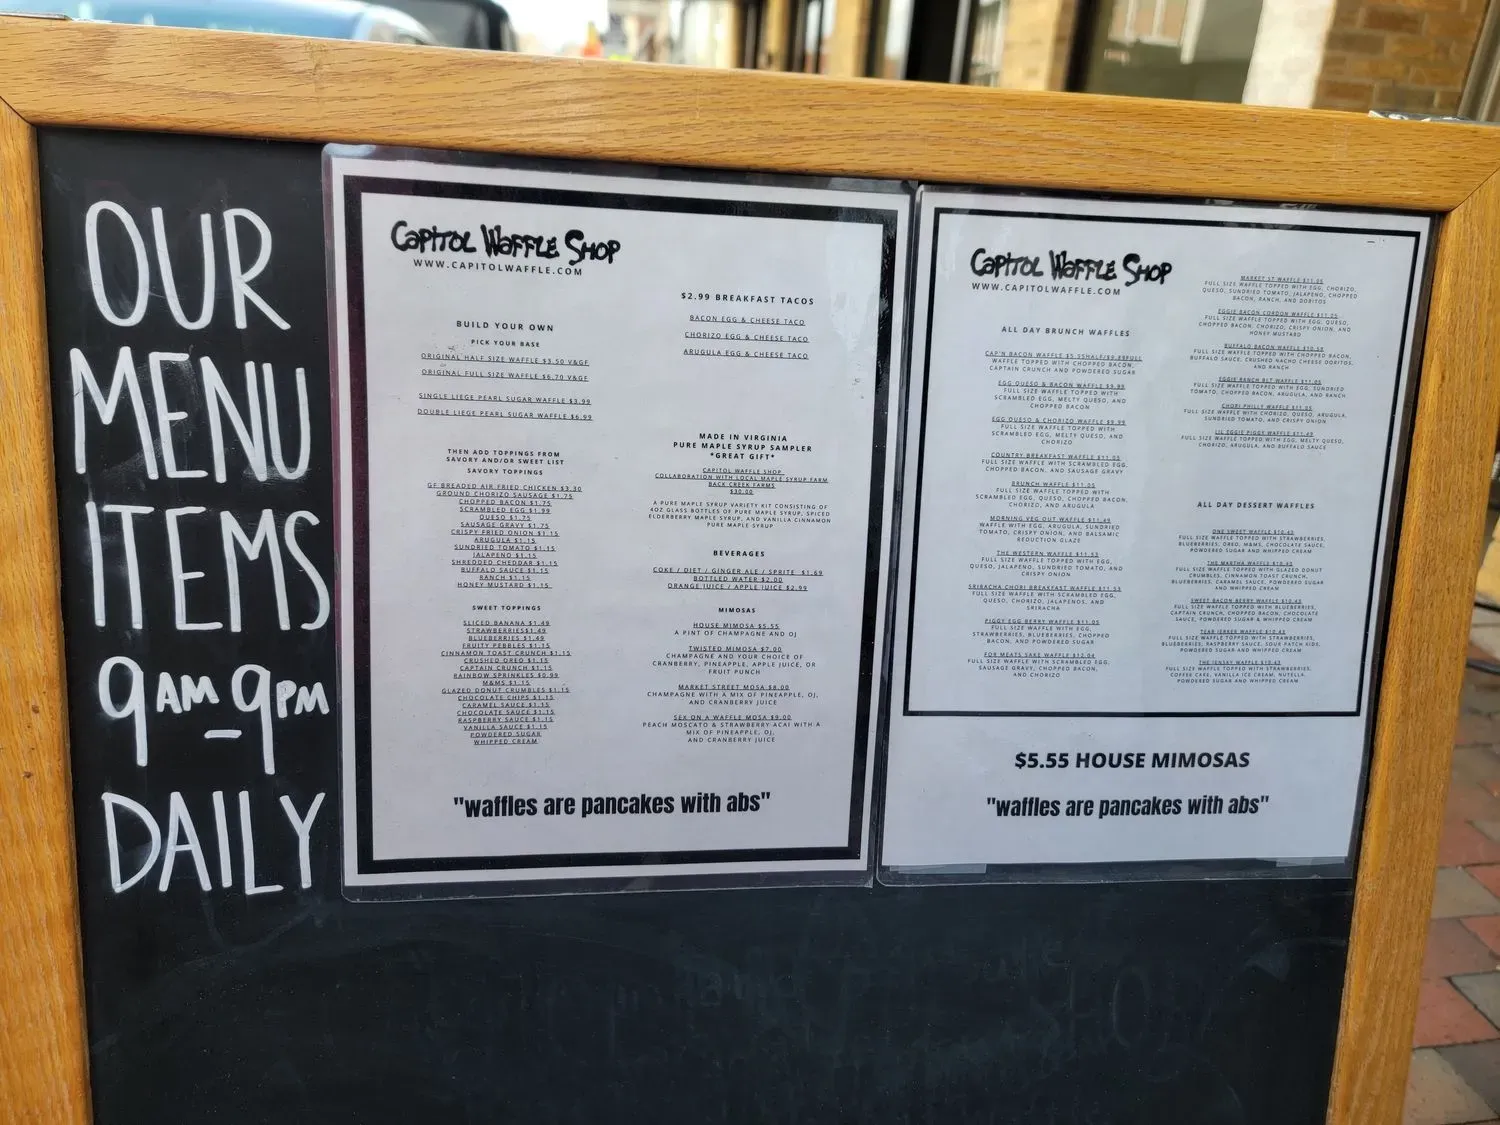 OUR
MENU
ITEMS
9AM-9PM
DAILY
CAPITOL WAFFLE SHOP
WWW.CAPITOLWAFFLE.COM
BUILD YOUR OWN
PICK YOUR BASE
ORIGINAL HALF SIZE WAFFLE $3.50 V&GF
ORIGINAL FULL SIZE WAFFLE $6.70 V&GF
SINGLE LIEGE PEARL SUGAR WAFFLE $3.99
DOUBLE LIEGE PEARL SUGAR WAFFLE $6.99
THEN ADD TOPPINGS FROM
SAVORY AND/OR SWEET LIST
SAVORY TOPPINGS
GF BREADED AIR FRIED CHICKEN $3.30
GROUND CHORIZO SAUSAGE $1.75
CHOPPED BACON $1.75
SCRAMBLED EGG $1.99
QUESO $1.75
SAUSAGE GRAVY $1.75
CRISPY FRIED ONION $1.15
ARUGULA $1.15
SUNDRIED TOMATO $1.15
JALAPENO $1.15
SHREDDED CHEDDAR $1.15
BUFFALO SAUCE $1.15
RANCH $1.15
HONEY MUSTARD $1.15
SWEET TOPPINGS
SLICED BANANA $1.49
STRAWBERRIES$1.49
BLUEBERRIES $1.49
FRUITY PEBBLES $1.15
CINNAMON TOAST CRUNCH $1.15
CRUSHED OREO $1.15
CAPTAIN CRUNCH $1.15
RAINBOW SPRINKLES $0.99
M&MS $1.15
GLAZED DONUT CRUMBLES $1.15
CHOCOLATE CHIPS $1.15
CARAMEL SAUCE $1.15
CHOCOLATE SAUCE $1.15
RASPBERRY SAUCE $1.15
VANILLA SAUCE $1.15
POWDERED SUGAR
WHIPPED CREAM
$2.99 BREAKFAST TACOS
BACON EGG & CHEESE TACO
CHORIZO EGG & CHEESE TACO
ARUGULA EGG & CHEESE TACO
MADE IN VIRGINIA
PURE MAPLE SYRUP SAMPLER
*GREAT GIFT*
CAPITOL WAFFLE SHOP
COLLABORATION WITH LOCAL MAPLE SYRUP FARM
BACK CREEK FARMS
$30.00
A PURE MAPLE SYRUP VARIETY KIT CONSISTING OF
4OZ GLASS BOTTLES OF PURE MAPLE SYRUP, SPICED
ELDERBERRY MAPLE SYRUP, AND VANILLA CINNAMON
PURE MAPLE SYRUP
BEVERAGES
COKE / DIET / GINGER ALE / SPRITE $1.69
BOTTLED WATER $2.00
ORANGE JUICE / APPLE JUICE $2.99
MIMOSAS
HOUSE MIMOSA $5.55
A PINT OF CHAMPAGNE AND OJ
TWISTED MIMOSA $7.00
CHAMPAGNE AND YOUR CHOICE OF
CRANBERRY, PINEAPPLE, APPLE JUICE, OR
FRUIT PUNCH
MARKET STREET MOSA $8.00
CHAMPAGNE WITH A MIX OF PINEAPPLE, OJ,
AND CRANBERRY JUICE
SEX ON A WAFFLE MOSA $9.00
PEACH MOSCATO & STRAWBERRY ACAI WITH A
MIX OF PINEAPPLE, OJ,
AND CRANBERRY JUICE
"waffles are pancakes with abs"
CAPITOL WAFFLE SHOP
WWW.CAPITOLWAFFLE.COM
ALL DAY BRUNCH WAFFLES
CAP'N BACON WAFFLE
WAFFLE TOPPED WITH CHOPPED BACON,
CAPTAIN CRUNCH AND POWDERED SUGAR
EGG QUESO & BACON WAFFLE $9.99
FULL SIZE WAFFLE TOPPED WITH
SCRAMBLED EGG, MELTY QUESO, AND
CHOPPED BACON
EGG QUESO & CHORIZO WAFFLE $9.99
FULL SIZE WAFFLE TOPPED WITH
SCRAMBLED EGG, MELTY QUESO, AND
CHORIZO
COUNTRY BREAKFAST WAFFLE $11.05
FULL SIZE WAFFLE WITH SCRAMBLED EGG,
CHOPPED BACON, AND SAUSAGE GRAVY
BRUNCH WAFFLE $11.05
FULL SIZE WAFFLE TOPPED WITH
SCRAMBLED EGG, QUESO, CHOPPED BACON,
CHORIZO, AND ARUGULA
MORNING VEG OUT WAFFLE $11.49
WAFFLE WITH EGG, ARUGULA, SUNDRIED
TOMATO, CRISPY ONION, AND BALSAMIC
REDUCTION GLAZE
THE WESTERN WAFFLE $11.53
FULL SIZE WAFFLE TOPPED WITH EGG,
QUESO, JALAPENO, SUNDRIED TOMATO, AND
CRISPY ONION
SRIRACHA CHORI BREAKFAST WAFFLE $11.53
FULL SIZE WAFFLE WITH SCRAMBLED EGG,
QUESO, CHORIZO, JALAPENOS, AND
SRIRACHA
PIGGY EGG BERRY WAFFLE $11.05
FULL SIZE WAFFLE WITH EGG,
STRAWBERRIES, BLUEBERRIES, CHOPPED
BACON, AND POWDERED SUGAR
FOR MEATS SAKE WAFFLE $12.04
FULL SIZE WAFFLE WITH SCRAMBLED EGG,
SAUSAGE GRAVY, CHOPPED BACON,
AND CHORIZO
MARKET ST WAFFLE $11.05
FULL SIZE WAFFLE TOPPED WITH EGG, CHORIZO,
QUESO, SUNDRIED TOMATO, JALAPENO, CHOPPED
BACON, RANCH, AND DORITOS
EGGIE BACON CORDON WAFFLE $11.05
FULL SIZE WAFFLE TOPPED WITH EGG, QUESO,
CHOPPED BACON, CHORIZO, CRISPY ONION AND
HONEY MUSTARD
BUFFALO BACON WAFFLE
FULL SIZE WAFFLE TOPPED WITH CHOPPED BACON,
BUFFALO SAUCE, CRUSHED NACHO CHEESE DORITOS,
AND RANCH
EGGIE RANCH BLT WAFFLE $11.05
FULL SIZE WAFFLE TOPPED WITH EGG, SUNDRIED
TOMATO, CHOPPED BACON, ARUGULA, AND RANCH
CHORI PHILLY WAFFLE $11.05
FULL SIZE WAFFLE WITH CHORIZO, QUESO, ARUGULA,
SUNDRIED TOMATO, AND CRISPY ONION
LIL EGGIE PIGGY WAFFLE $11.49
FULL SIZE WAFFLE TOPPED WITH EGG, MELTY QUESO,
CHORIZO, ARUGULA, AND BUFFALO SAUCE
ALL DAY DESSERT WAFFLES
ONE SWEET WAFFLE $10.43
FULL SIZE WAFFLE TOPPED WITH STRAWBERRIES,
BLUEBERRIES, OREO, M&MS, CHOCOLATE SAUCE,
POWDERED SUGAR AND WHIPPED CREAM
THE MARTHA WAFFLE $10.49
FULL SIZE WAFFLE TOPPED WITH GLAZED DONUT
CRUMBLES, CINNAMON TOAST CRUNCH,
BLUEBERRIES, CARAMEL SAUCE, POWDERED SUGAR
AND WHIPPED CREAM
SWEET BACON BERRY WAFFLE $10.43
FULL SIZE WAFFLE TOPPED WITH BLUEBERRIES,
CAPTAIN CRUNCH, CHOPPED BACON, CHOCOLATE
SAUCE, POWDERED SUGAR & WHIPPED CREAM
TEAR JERKER WAFFLE $10.43
FULL SIZE WAFFLE TOPPED WITH STRAWBERRIES,
BLUEBERRIES, RASPBERRY SAUCE, SOUR PATCH KIDS,
POWDERED SUGAR AND WHIPPED CREAM
THE JENSKY WAFFLE $10.43
FULL SIZE WAFFLE TOPPED WITH STRAWBERRIES,
COFFEE CAKE, VANILLA ICE CREAM, NUTELLA,
POWDERED SUGAR AND WHIPPED CREAM
$5.55 HOUSE MIMOSAS
"waffles are pancakes with abs"